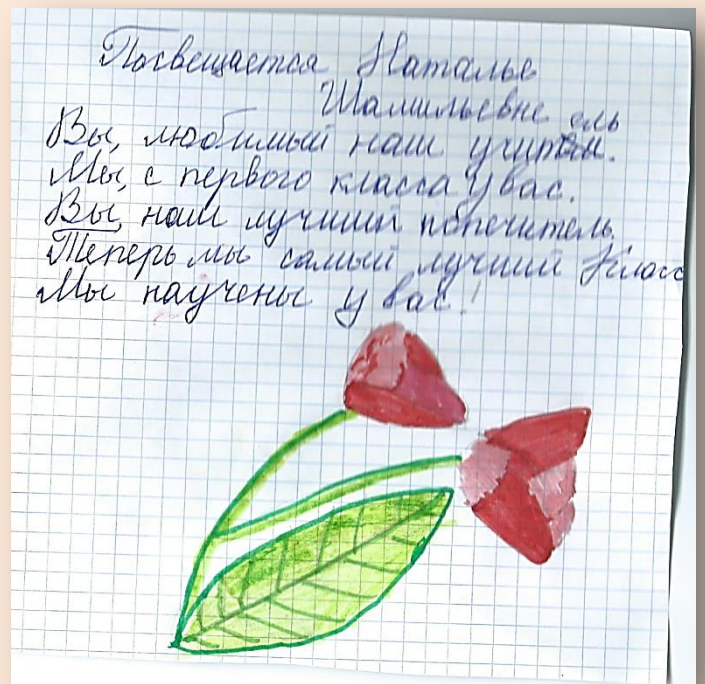 Посвещается Наталье
Шамильевне
Вы, любимый наш учитель.
Мы, с первого класса у вас.
Вы, наш лучший попечитель.
Теперь мы самый лучший класс
Мы научены у вас!